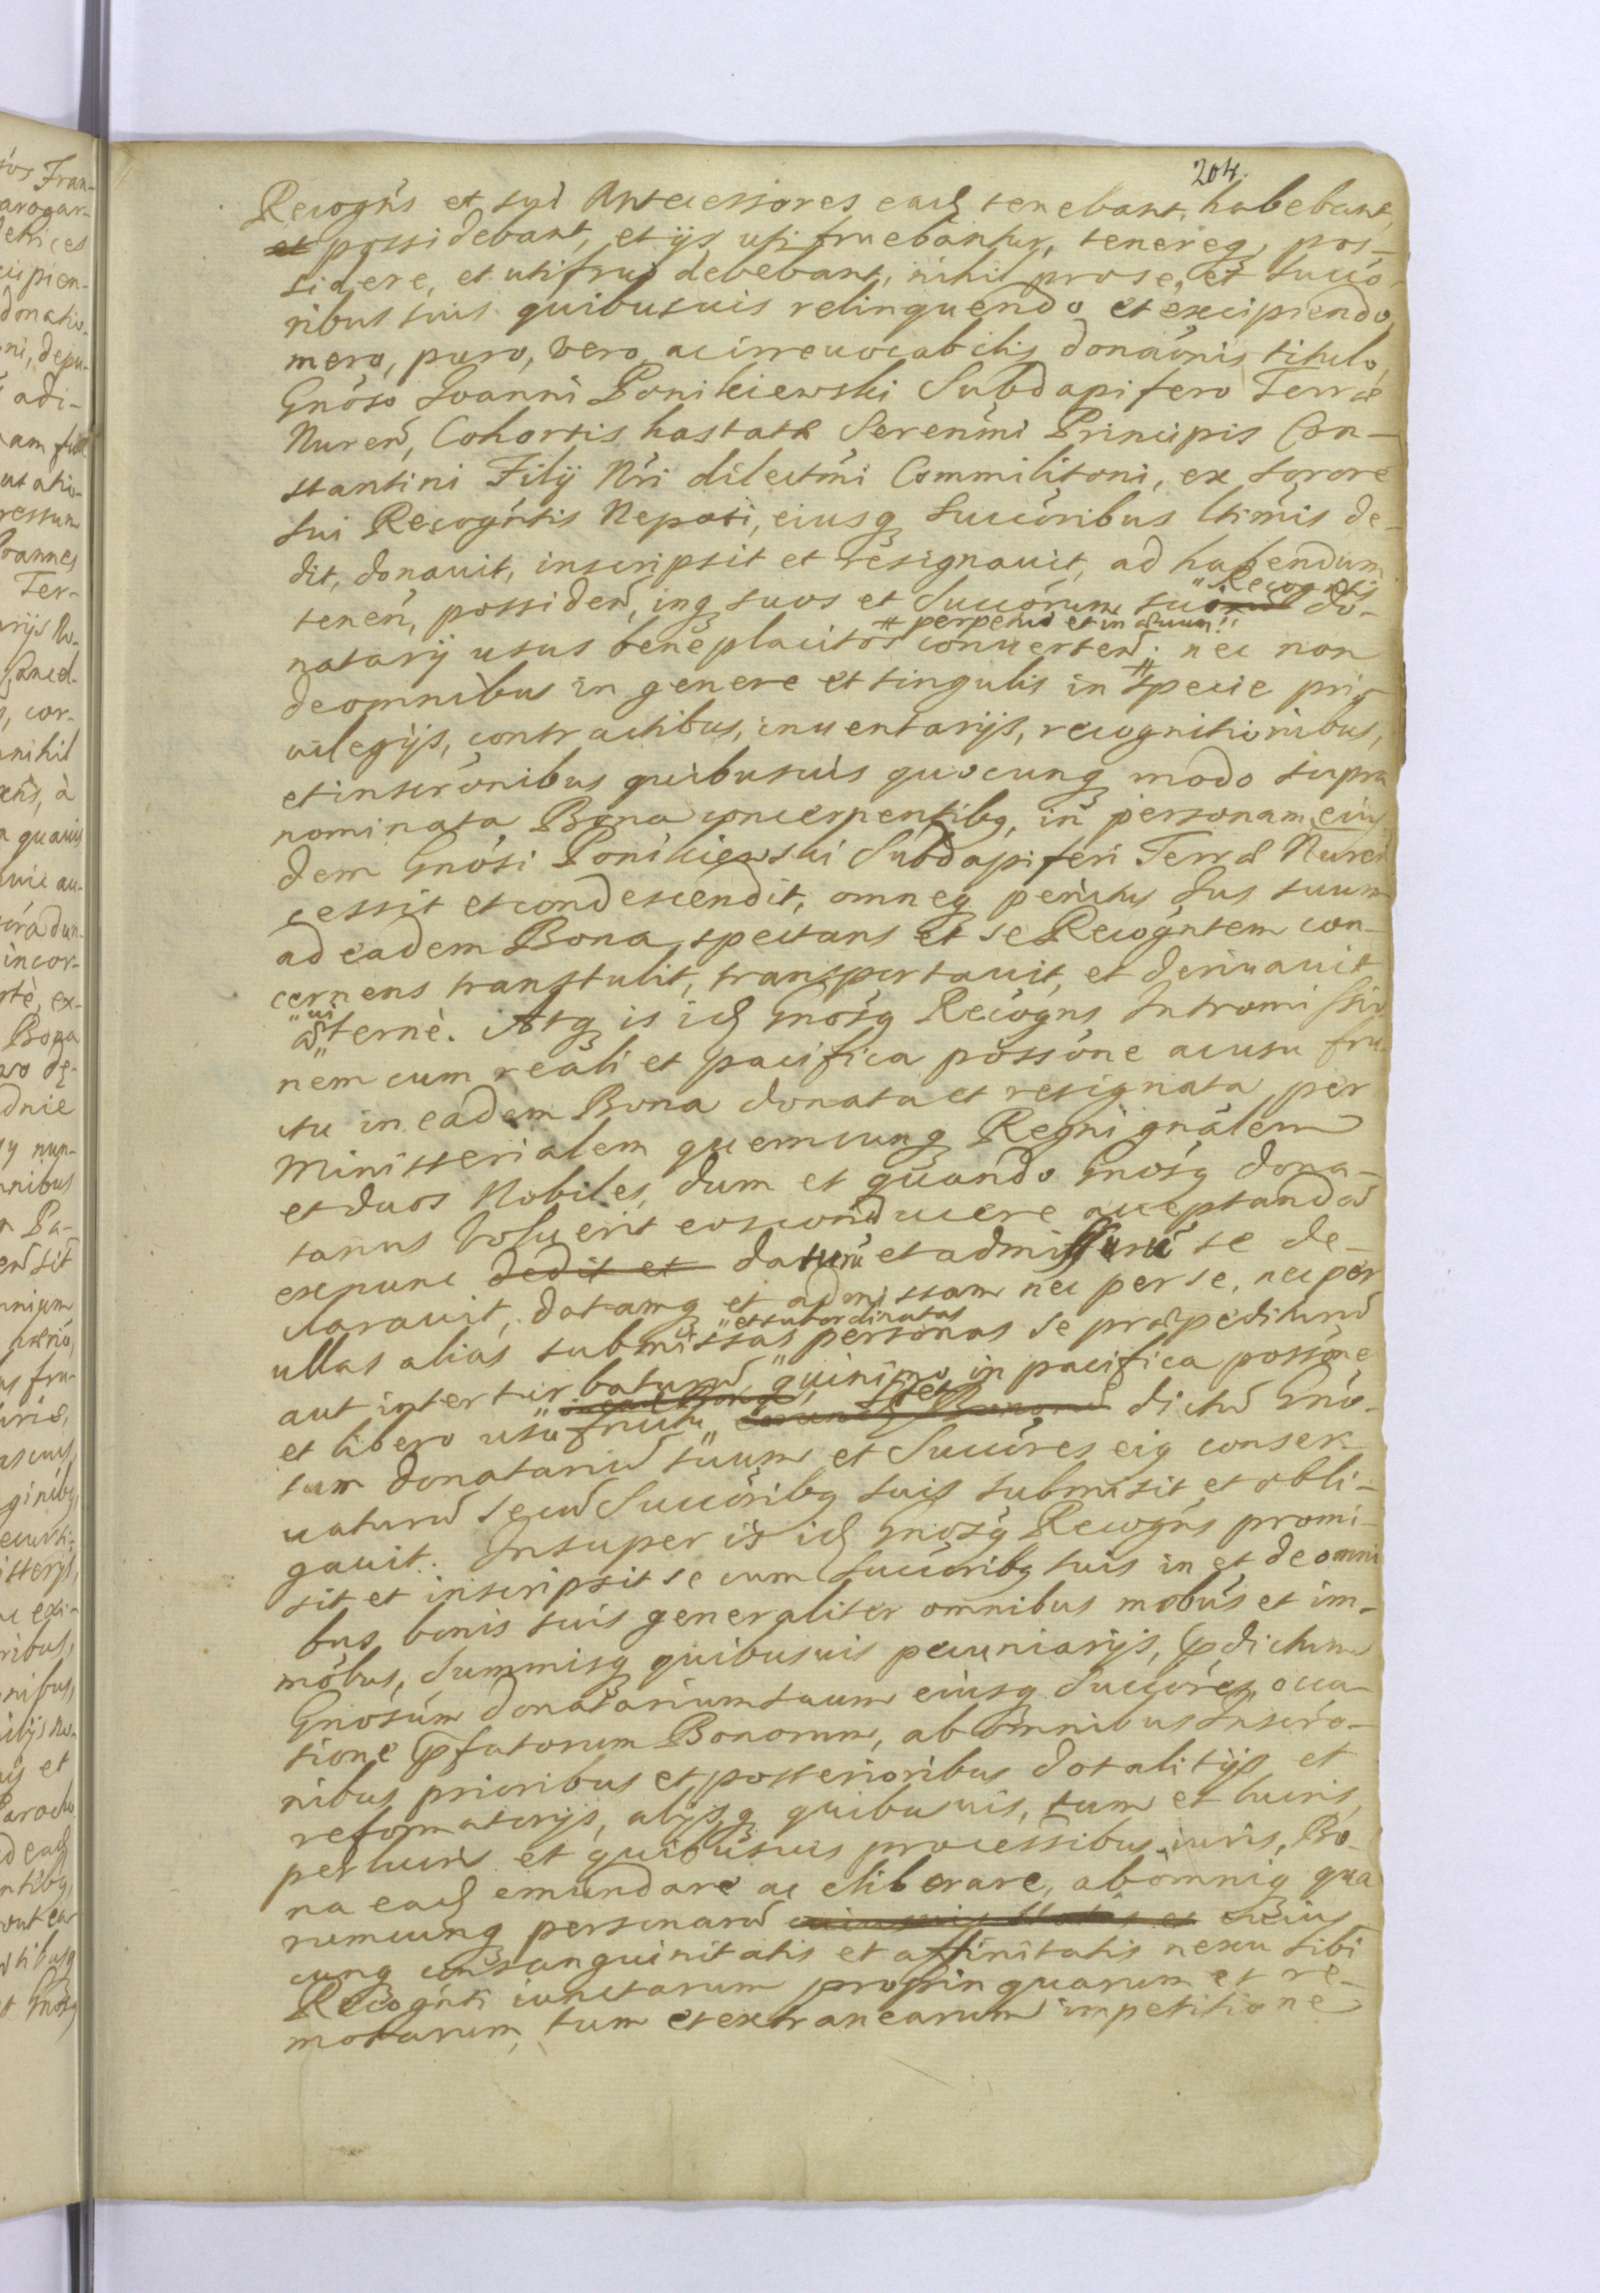 204.
Recogñs et sui Antecessores eadē tenebant, habebant,
et possidebant, et ijs utifruebantur, tenereq, pos-
sidere, et utifrui debebant, nihil pro se, et Succo-
ribus suis quibusuis relinquendo et excipiendo,
mero, puro, vero, ac irreuocabilis donaōnis titulo,
Gnōso Joanni Ponikiewski Subdapifero Terræ
Nureñ, Cohortis hastatæ Serenīmi Principis Con-
stantini Filij Nr̄i dilectm̄i Commilitoni, ex sorore
sui Recogn̄tis Nepoti, eiusq Succōribus ltīmis de-
dit, donauit, inscripsit et resignauit, ad habendum
"Recogn̄tis
teneñ, possideñ, inq suos et Succōrum suorum do-
# perpetuo et in æuum"
natarij usus beneplacitos conuerteñ: nec non
de omnibus in genere et singulis in specie pri-
uilegijs, contractibus, inuentarijs, recognitionibus,
et inscrōnibus quibusuis quocunq modo supra
nominata Bona concernentibq, in personam eius
dem Gnōsi Ponikiewski Subdapiferi Terræ Nureñ
cessit et condescendit, omneq penitus Jus suum
ad eadem Bona spectans et se Recogn̄tem con-
cernens transtulit, transportauit, et deriuauit
"ui
æternè. Atq is idē Gnōsq Recogñs Intromissio
nem cum reali et pacifica possōne ac usu fru-
ctu in eadem Bona donata et resignata per
Ministerialem quemcunq Regni gn̄alem
et duos Nobiles, dum et quando Gnōsq dona-
tarius voluerit eos conducere acceptandā
exnunc dedit et daturū et admissurū se de-
clarauit, datamq et admissam nec per se, nec per
"et subordinatas
ullas alias submissas personas se præpediturū
aut interturbaturū, quinimo in pacifica possōne
et libero usu fructu eorundē Bonorū dictū Gnō-
sum donatariū suum et Succōres eiq conser-
uaturū se cū Succōribq suis submisit et obli-
gauit. Insuper is idē Gnōsq Recogñs promi-
sit et inscripsit se cum Succōribq suis in et de omni
bus bonis suis generaliter omnibus mobūs et im-
mōbus, summisq quibusuis pecuniarijs, p̄dictum
Gnōsum donatarium suum eiusq Succōres, occa-
sione p̄fatorum Bonorum, ab omnibus Inscrō-
nibus prioribus et posterioribus dotalitijs et
reformatorijs, alijsq quibusuis, tum et lucris,
perlucris et quibusuis processibus iuris, Bo-
na eadē emundare ac eliberare, ab omniq qua
rumcunq personarū cuiusuis status et cuius
cunq consanguinitatis et affinitatis nexu sibi
Recogn̄ti iunctarum propinquarum et re-
motarum, tum et extranearum impetitione